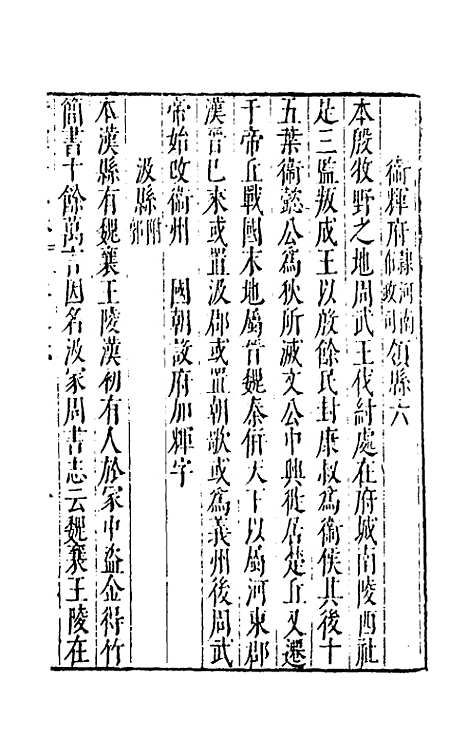 衞輝府隸河南布政司領縣六
本殷牧野之地周武王伐紂處在府城南陵西社
是三監叛成王以殷餘民封康叔爲衞侯其後十
五葉衞懿公爲狄所滅文公中興徙居楚丘又遷
于帝丘戰國末地屬晉魏秦倂天下以屬河東郡
漢晉已來或置汲郡或置朝歌或爲義州後周武
帝始改衞州　國朝設府加輝字
汲縣附郭
本漢縣有魏襄王陵漢初有人於冢中盜金得竹
簡書十餘萬言因名汲冢周書志云魏襄王陵在